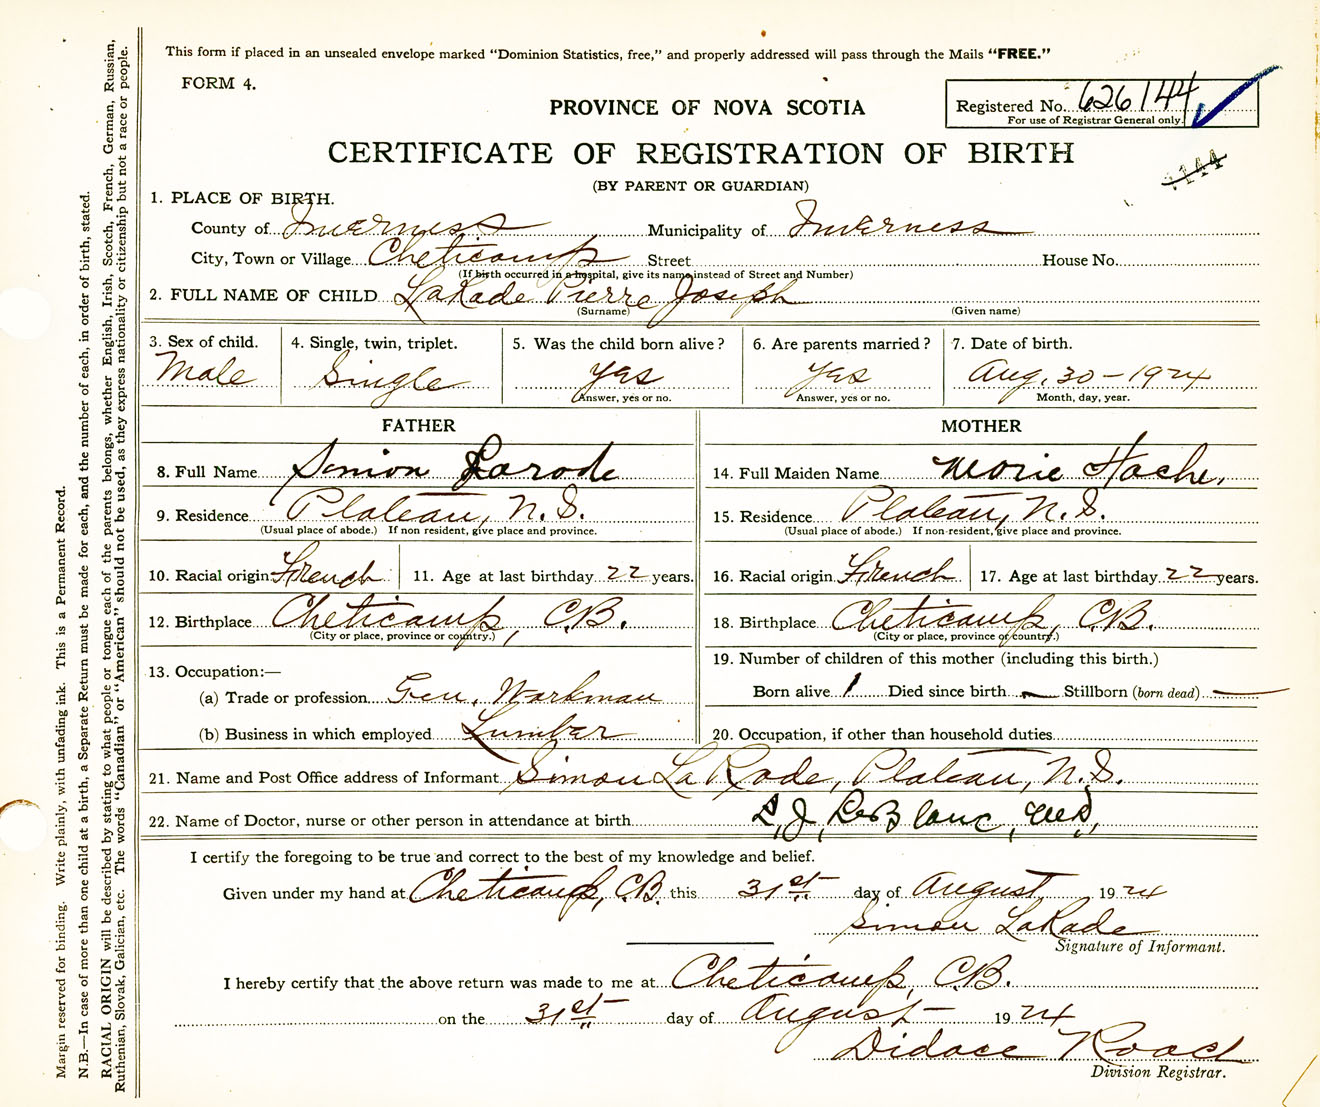 This form if placed in an unsealed envelope marked "Dominion Statistics, free," and properly addressed will pass through the Mails "FREE."
FORM 4.
PROVINCE OF NOVA SCOTIA
Registered No. 626144
For use of Registrar General only.
CERTIFICATE OF REGISTRATION OF BIRTH
144
(BY PARENT OR GUARDIAN)
1. PLACE OF BIRTH.
County of Inverness Municipality of Inverness
City, Town or Village Cheticamp Street House No.
(If birth occurred in a hospital, give its name instead of Street and Number)
2. FULL NAME OF CHILD LaRade Pierre Joseph
(Surname) (Given name)
3. Sex of child. 4. Single, twin, triplet. 5. Was the child born alive? 6. Are parents married? 7. Date of birth.
Male Single Yes Yes Aug, 30 - 1924
Answer, yes or no. Answer, yes or no. Month, day, year.
FATHER MOTHER
8. Full Name Simon Larade 14. Full Maiden Name Marie Hache,
9. Residence Plateau, N.S. 15. Residence Plateau, N.S.
(Usual place of abode.) If non resident, give place and province. (Usual place of abode.) If non-resident, give place and province.
10. Racial origin French 11. Age at last birthday 22 years. 16. Racial origin French 17. Age at last birthday 22 years.
12. Birthplace Cheticamp, C.B. 18. Birthplace Cheticamp, C.B.
(City or place, province or country.) (City or place, province or country.)
13. Occupation:— 19. Number of children of this mother (including this birth.)
(a) Trade or profession Gen. Workman Born alive 1 Died since birth — Stillborn (born dead) —
(b) Business in which employed Lumbar 20. Occupation, if other than household duties
21. Name and Post Office address of Informant Simon LaRade, Plateau, N.S.
22. Name of Doctor, nurse or other person in attendance at birth L.J. LeBlanc, M.D.
I certify the foregoing to be true and correct to the best of my knowledge and belief.
Given under my hand at Cheticamp, C.B. this 31st day of August 1924
Simon LaRade
Signature of Informant.
I hereby certify that the above return was made to me at Cheticamp, C.B.
on the 31st day of August - 1924
Didace Roach
Division Registrar.
Margin reserved for binding. Write plainly, with unfading ink. This is a Permanent Record.
N.B.—In case of more than one child at a birth, a Separate Return must be made for each, and the number of each, in order of birth, stated.
RACIAL ORIGIN will be described by stating to what people or tongue each of the parents belongs, whether English, Irish, Scotch, French, German, Russian,
Ruthenian, Slovak, Galician, etc. The words "Canadian" or "American" should not be used, as they express nationality or citizenship but not a race or people.